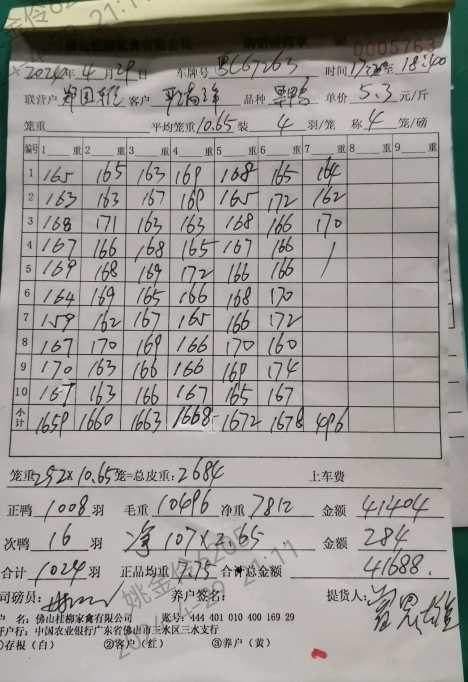 佛山桂柳家禽有限公司
0005763
2024年4月29日 车牌号 粤CG7263 时间 17:20至18:40
联营户 客户 品种 单价 5.3 元/斤
笼重 平均笼重 10.65 装 4 羽/笼 称 4 笼/磅
编号 1 重 2 重 3 重 4 重 5 重 6 重 7 重 8 重 9 重
1 165 165 163 169 168 165 164
2 163 163 167 169 165 172 162
3 168 171 163 163 168 166 170
4 167 166 168 165 167 166 /
5 169 168 169 172 166 166
6 164 169 165 166 168 170
7 159 162 167 165 166 172
8 167 170 169 166 170 160
9 170 163 166 166 169 174
10 167 163 166 167 165 167
小计 1659 1660 1663 1668 1672 1678 496
笼重:252×10.65笼=总皮重:2684 上车费
正鸭 1008 羽 毛重 10496 净重 7812 金额 41404
次鸭 16 羽 净 107×2.65 金额 284
合计 1024 羽 正品均重 7.75 合计总金额 41688.
司磅员: 养户签名: 提货人:
户 名:佛山桂柳家禽有限公司 账号:444 401 010 400 169 29
开户行:中国农业银行广东省佛山市三水区三水支行
①存根(白) ②客户(红) ③养户(黄)
姚金伶6205
21:11